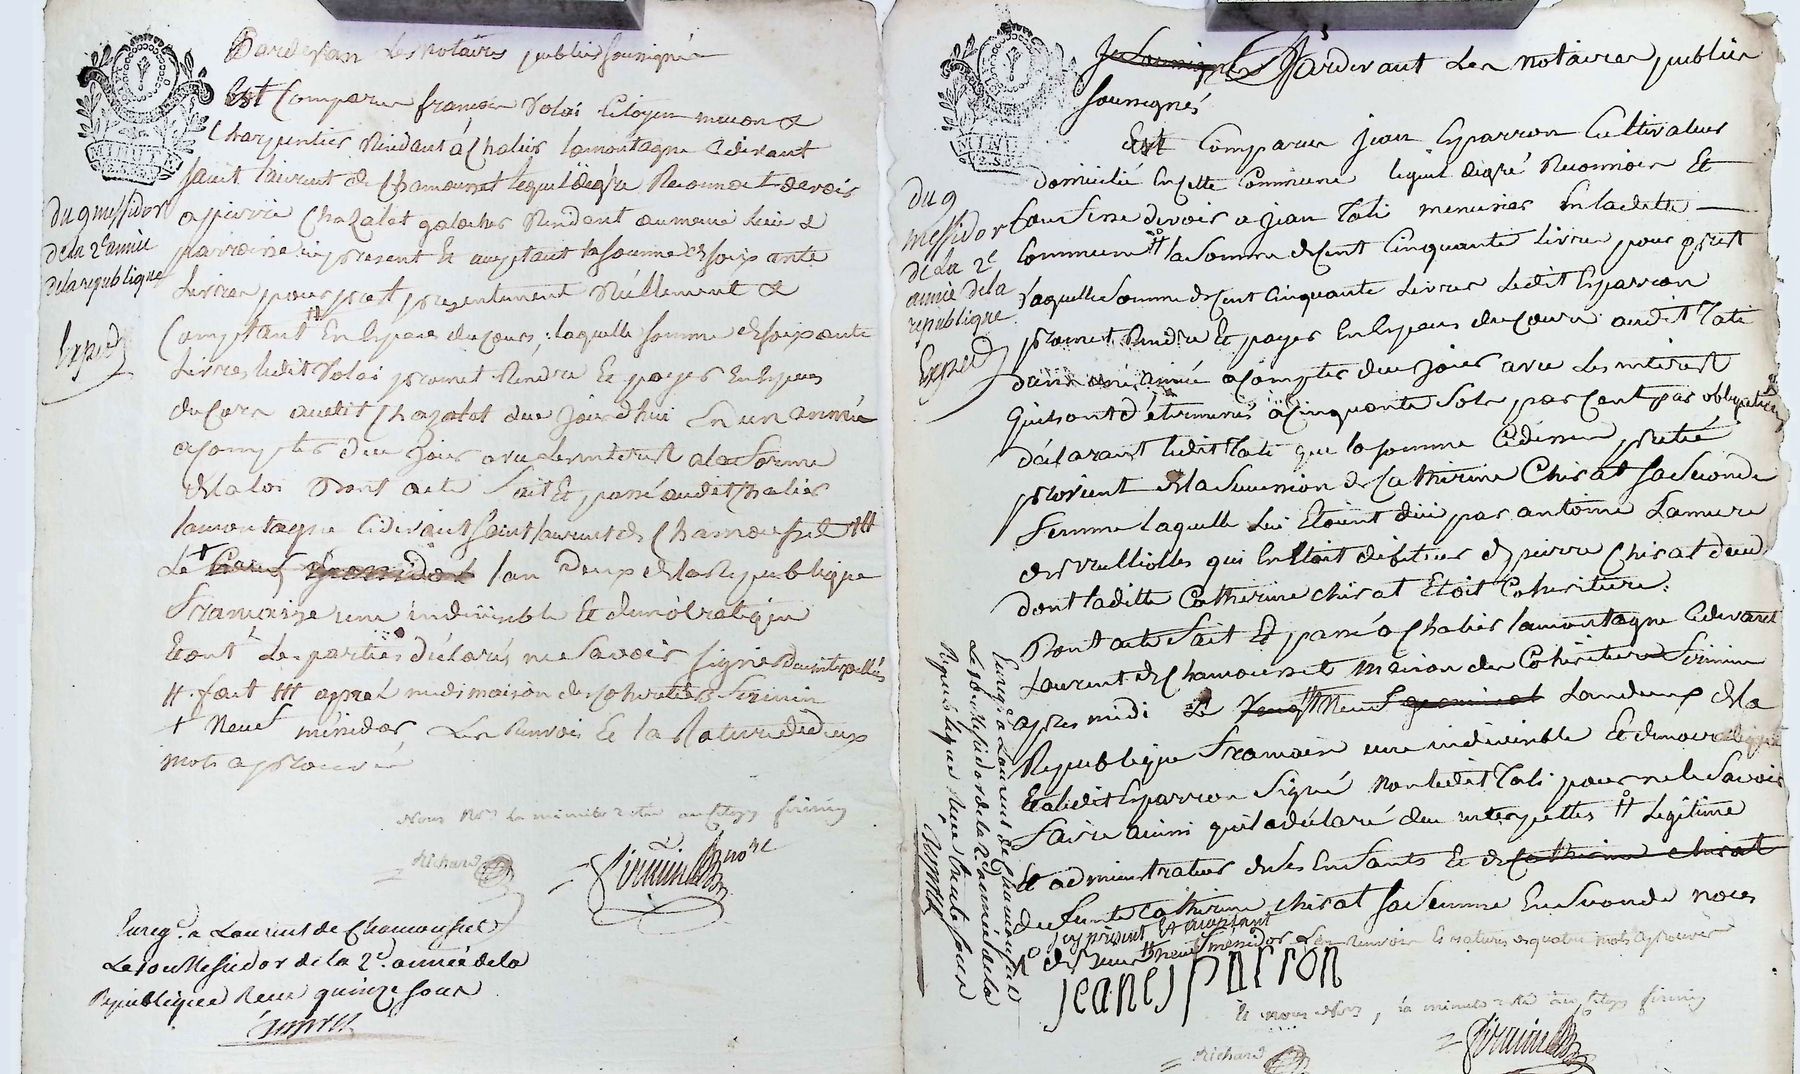 Pardevan Les notaires publics sousignés
Est Comparu françois Volai Citoyen masson &
Charpentier Résidant à Chalier lamontagne Cidevant
saint laurent de Chamousset lequel de gré Reconnoit devoir
a pierre Chazalet galocher Résidant au meme lieu &
parroisse ici présent Et acceptant la somme de soixante
Livres pour prest presentement Réellement &
Comptant # En Espece du cours, laquelle somme de soixante
Livres ledit Volai promet Rendre Et payer En Especes
du Cours audit Chazalet due jourd'hui En un année
a Compter du jour avec les interest a la forme
de la loi Dont acte fait Et passé audit Chalier
lamontagne Cidevant saint laurent de Chamousset ###
Le + lan Deux de la Republique
Francaise une indivisible Et démocratique
Et ont Les parties déclaré ne savoir signer Deux interpellés
# fait ### apres midi maison du Cohéritier Firmin
+ Neufméssidor Les Renvois Et la Rature de deux
mots approuvé
du 9 messidor
de la 2e année
de la republique
Exped
Nous Nores la minute restée au Citoyen firmin
Richard
Firmin nore
Enregé a Laurent de Chamousset
Le 10 Messidor de la 2e année de la
Republique Reçu quinze sous
Je sousigné Pardevant Les notaires publics
sousignés
Est Comparu jean Esparron Cultivateur
domicilié En cette Commune lequel de gré Reconnoit Et
Confesse devoir a jean Tali menusier En ladite
Commune # la somme de Cent Cinquante livres pour prest
Laquelle somme de Cent Cinquante Livres Ledit Esparron
promet Rendre Et payer En Especes du Cours audit Tali
dans une année a Compter du jour avec Les interest
qui sont déterminés a Cinquante sols par Cent par obligation
déclarant ledit Tali que la somme Cidessus pretté
provient de la succession de Catherine Chirat sa seconde
femme laquelle lui Etoient due par antoine Lamure
de qui En Etoit débiteur de pierre Chirat
dont ladite Catherine chirat Etoit Cohéritiere.
Dont acte fait Et passé a Chalier lamontagne Cidevant
Laurent de Chamousset maison du Cohéritier Firmin
apres midi Le Lan deux de la
Republique Francaise une indivisible Et démocratique
Et a ledit Esparron Signé Non ledit Tali pour ne le savoir
faire ainsi qu'il a déclaré du interpellés # Legitime
Et administrateur de ses Enfants Et de Catherine Chirat
de feunte Catherine chirat sa femme En seconde noces
ici présent Et acceptant
## neuf messidor Les Renvois Et ratures de quatre mots approuvés
du 9
messidor
de la 2e
année de la
republique
Exped
Enregé a Laurent de Chamousset
Le 10 Messidor de la 2e année de la
Republique Reçu trente sous
jean esparron
Et nous Nores, la minute restée au Citoyen firmin
Richard
Firmin